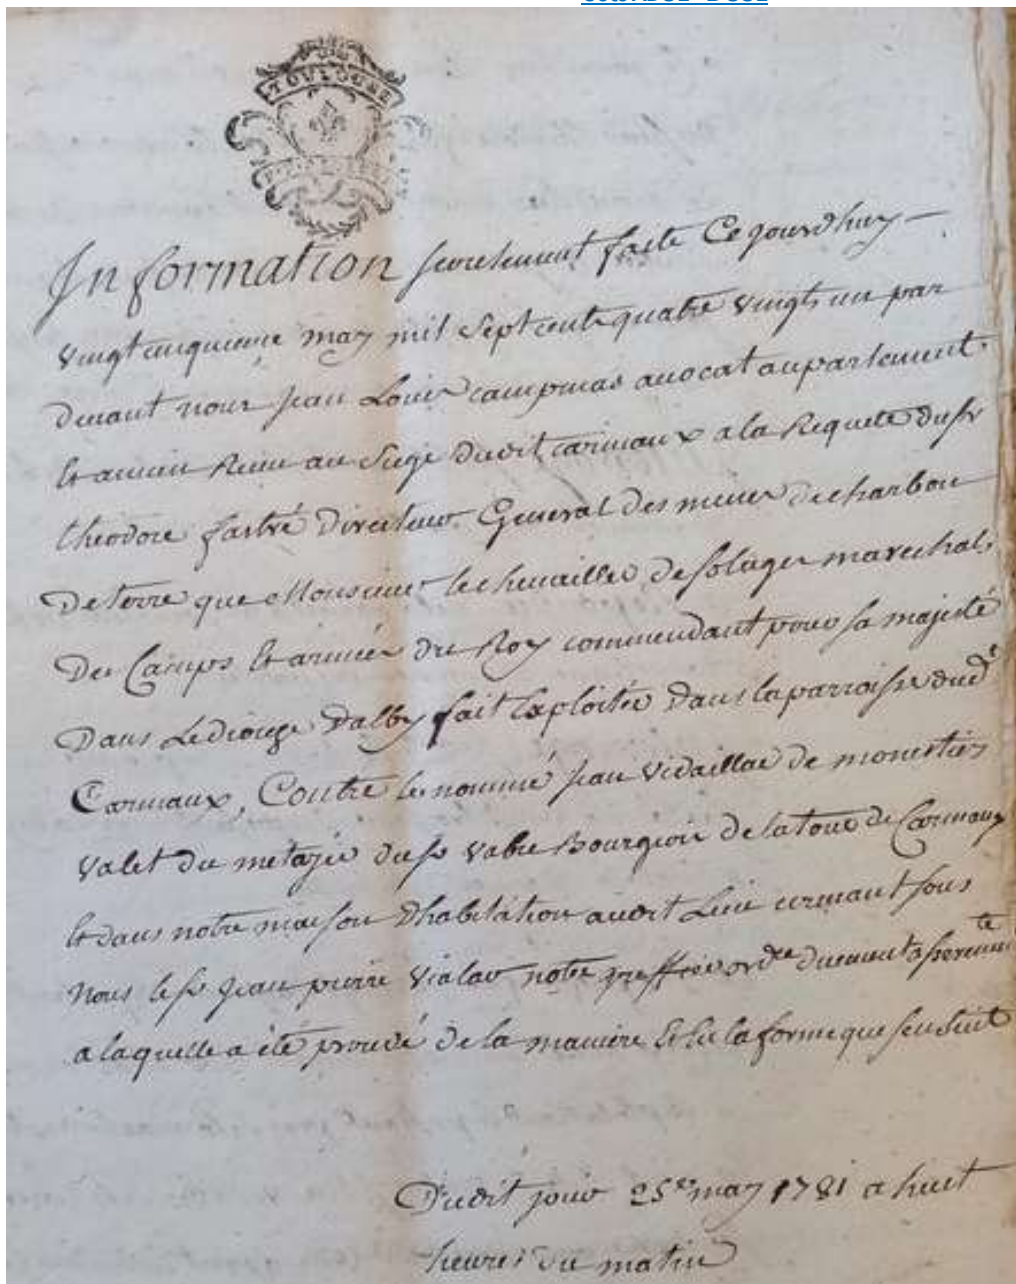 TOULOUSE
Information secretement faite Cejourdhuy
vingt cinquieme may mil sept cents quatre vingts un par
devant nous jean Louis campmas avocat au parlement
Et ancien au siege dudit carmaux a la Requete du sr
theodore fastré Directeur General des mines de charbon
De terre que Monsieur le chevaillier de solages marechal
Des Camps Et armées du Roy commendant pour sa majesté
Dans Le dioceze Dalby fait Exploiter Dans la parroisse dudt
Carmaux, Contre le nommé jean vidaillac de monestiés
valet du metayer du sr vabre Bourgeois de la toue de Carmaux
Et dans notre maison Dhabitation audit Lieu ecrivant sous
Nous le sr jean pierre vialar notre greffier ordre duement assermenté
a laquelle a été procédé de la maniere Et en la forme que sensuit
Dudit jour 25e may 1781 a huit
heures du matin